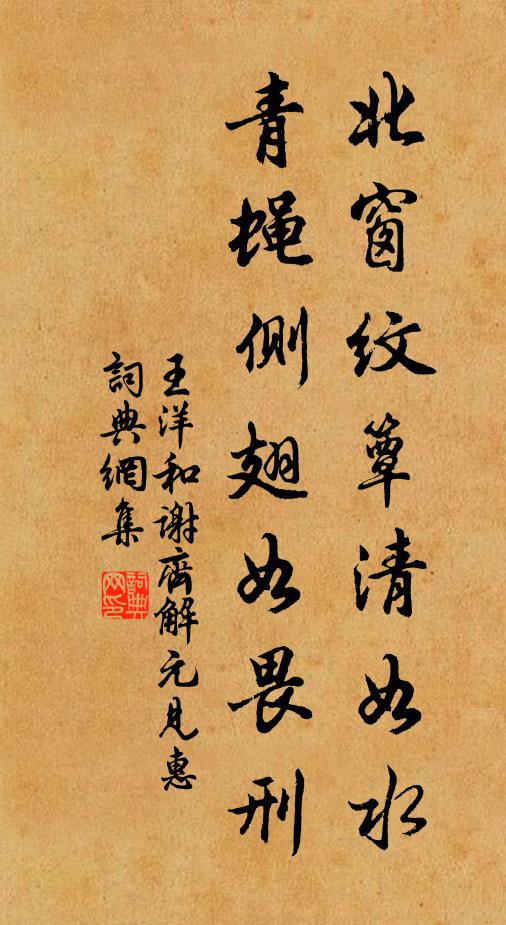 北窗纹簟清如水
青蝇侧翅如畏刑
王洋和谢齊解元見惠
詞典網集
詞典网印